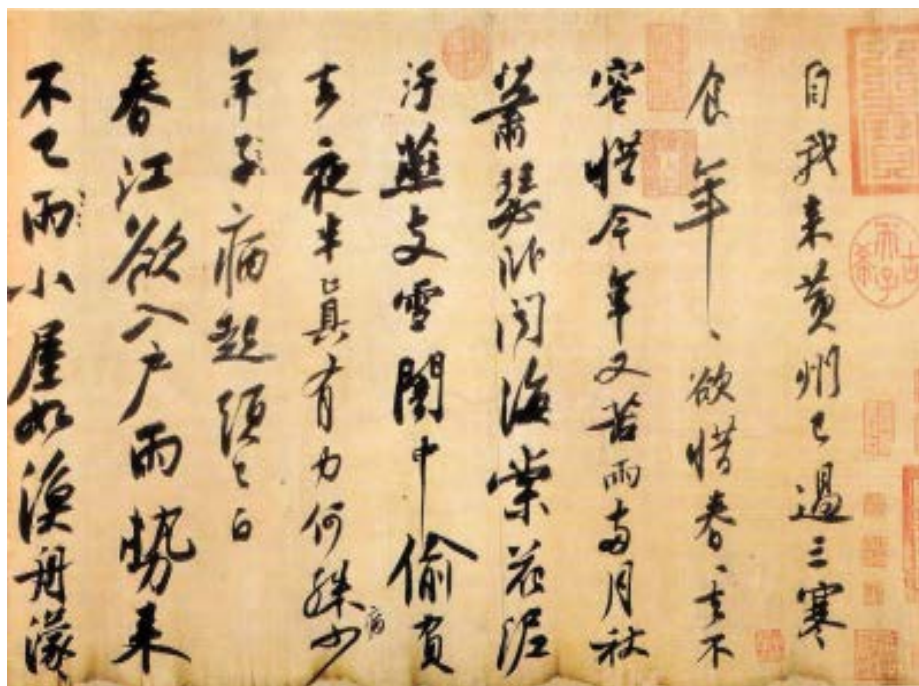 自我来黄州已過三寒
食年〻欲惜春〻去不
容惜今年又苦雨两月秋
蕭瑟卧聞海棠花泥
汙燕支雪闇中偷負
去夜半真有力何殊病少
年子病起須已白
春江欲入户雨勢来
不已雨小屋如漁舟濛〻
古希天子